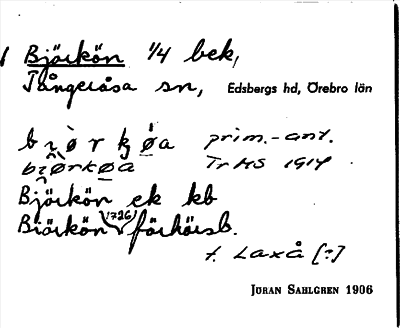 Björkön 1/4 bek,
Tångeråsa sn, Edsbergs hd, Örebro län
prim.-ant.
TrHS 1914
Björkön ek kb
Biörkön 1726 förhörsb.
t. Laxå [?]
JÖRAN SAHLGREN 1906